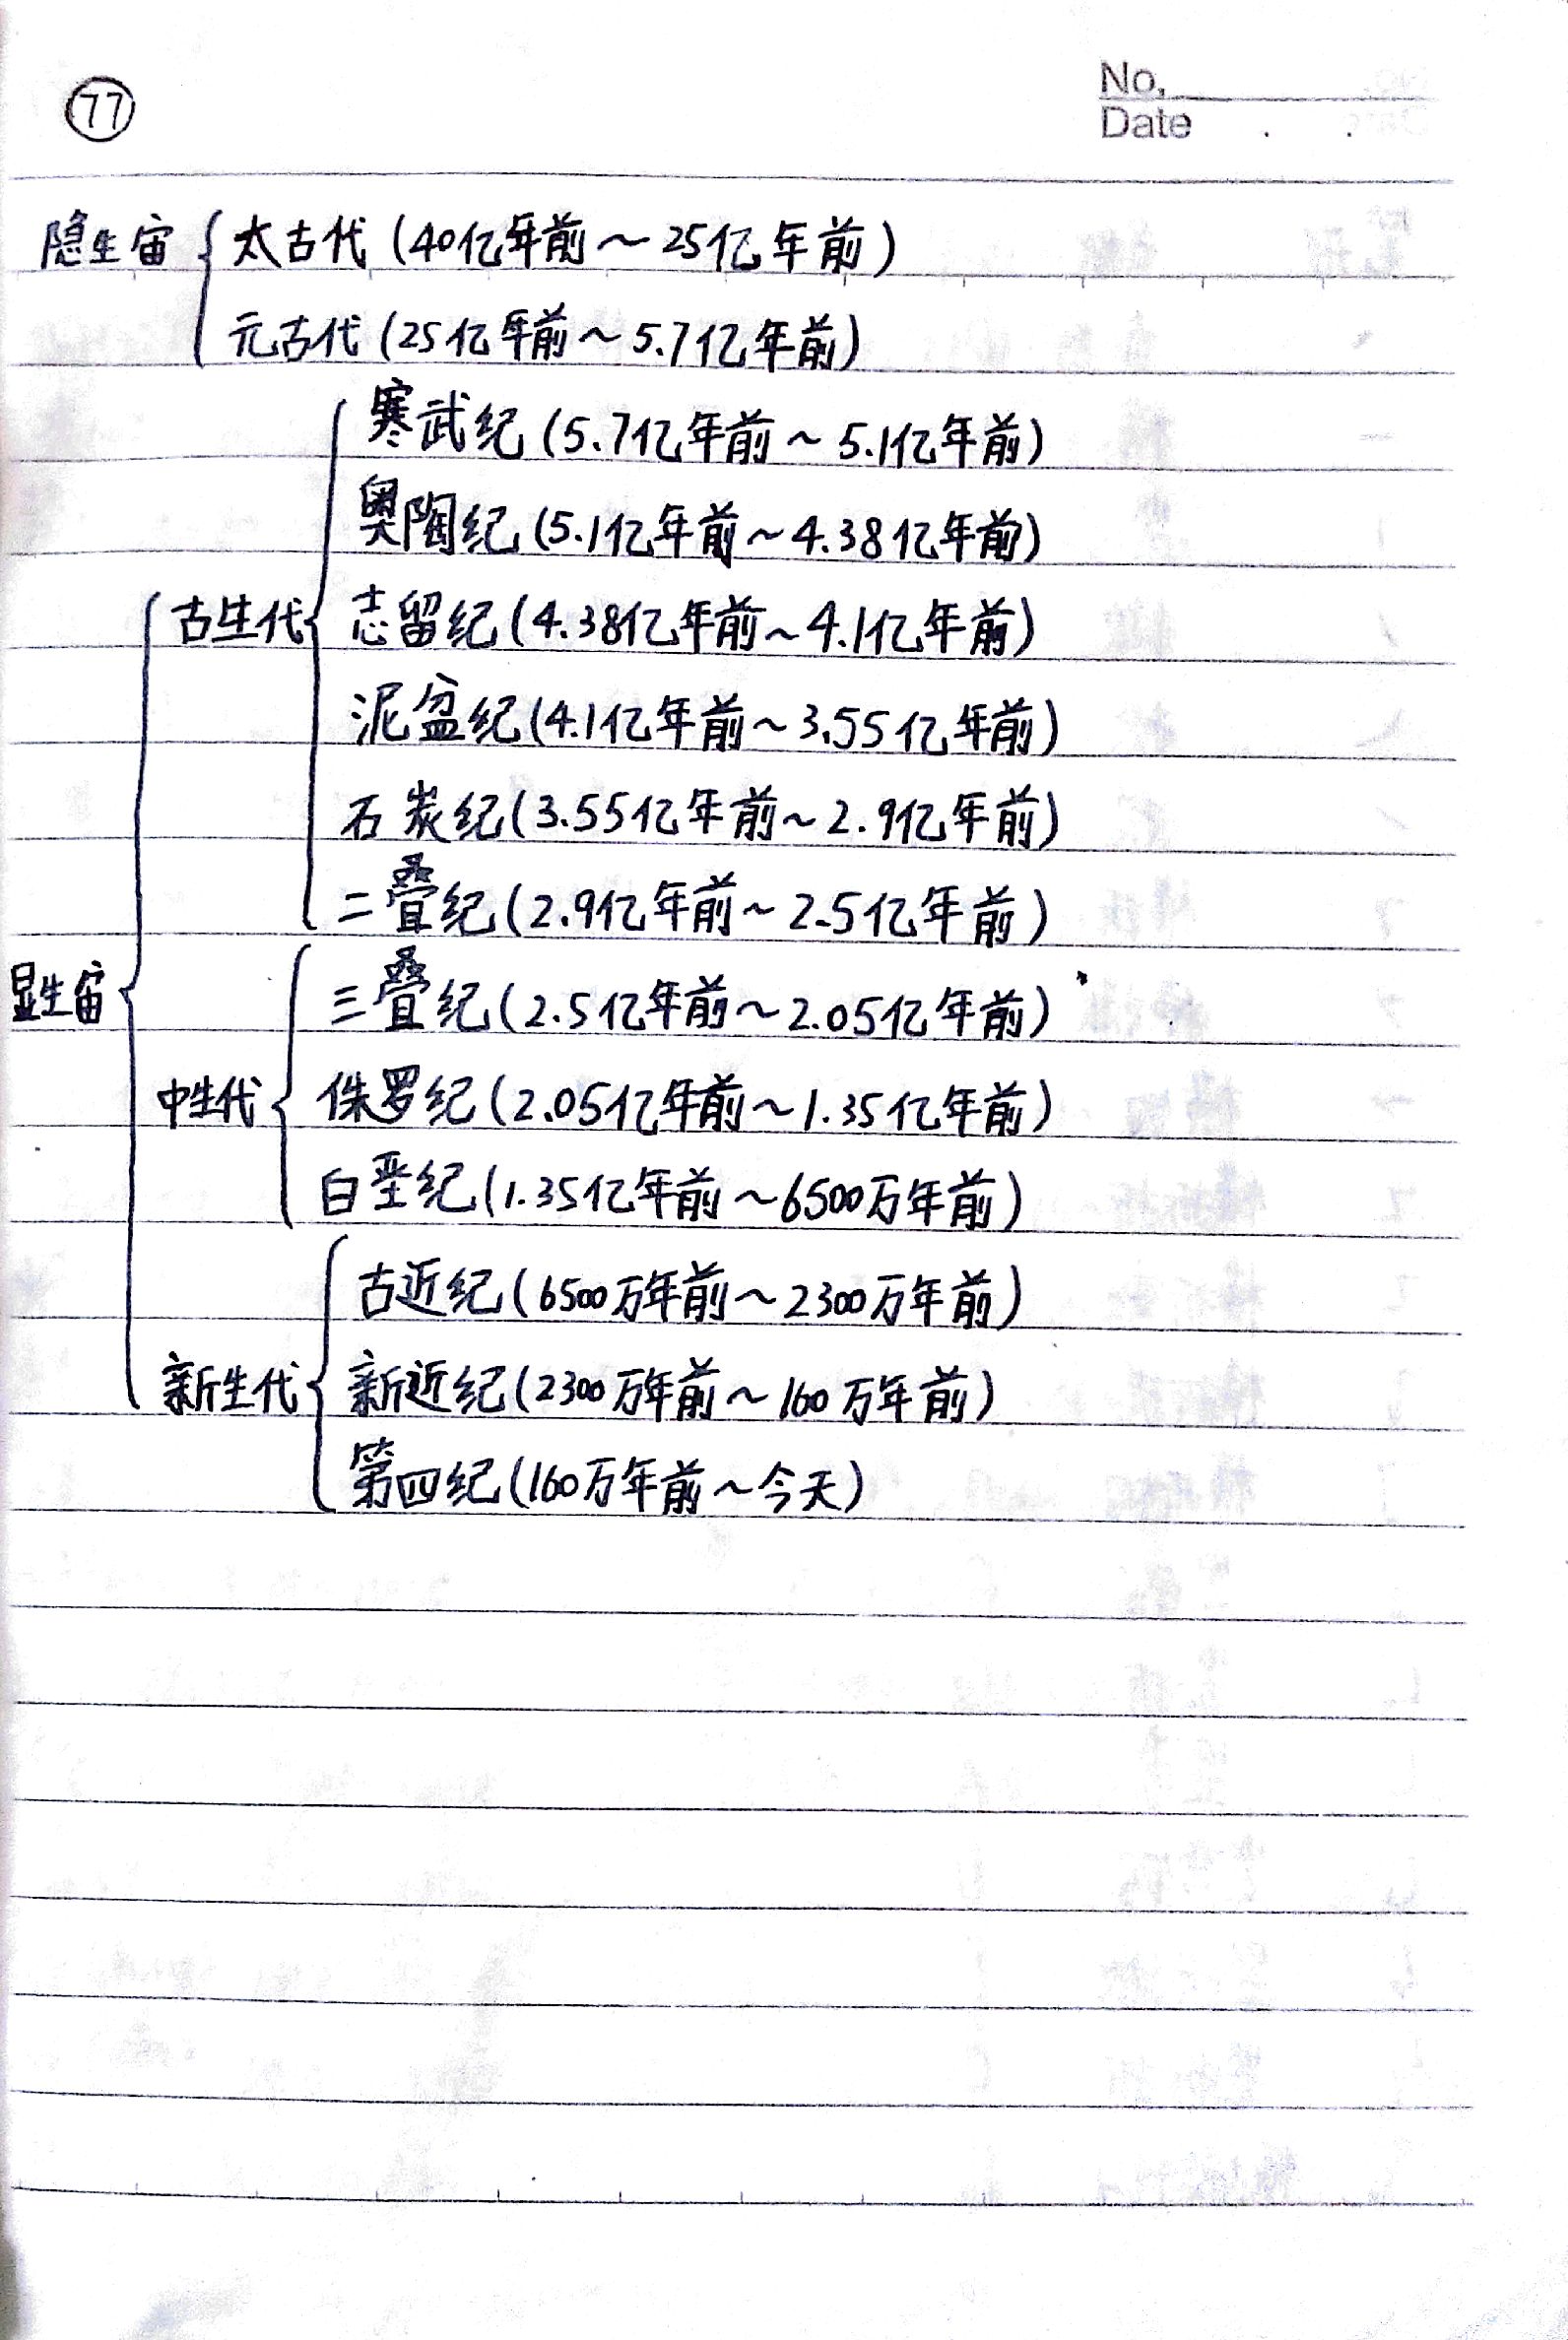 77
No.
Date . .
隐生宙 { 太古代 (40亿年前～25亿年前)
元古代 (25亿年前～5.7亿年前)
寒武纪 (5.7亿年前～5.1亿年前)
奥陶纪 (5.1亿年前～4.38亿年前)
古生代 { 志留纪 (4.38亿年前～4.1亿年前)
泥盆纪 (4.1亿年前～3.55亿年前)
石炭纪 (3.55亿年前～2.9亿年前)
二叠纪 (2.9亿年前～2.5亿年前)
显生宙 { 三叠纪 (2.5亿年前～2.05亿年前)
中生代 { 侏罗纪 (2.05亿年前～1.35亿年前)
白垩纪 (1.35亿年前～6500万年前)
古近纪 (6500万年前～2300万年前)
新生代 { 新近纪 (2300万年前～160万年前)
第四纪 (160万年前～今天)